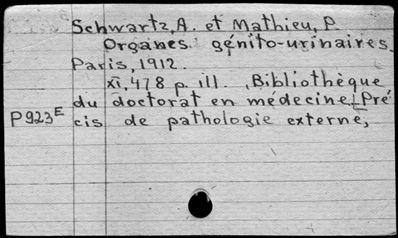 Schwartz, A. et Mathieu, P.
Organes génito-urinaires.
Paris, 1912.
XI, 478 p. ill. (Bibliothèque
du doctorat en médecine. Pré
P923E cis de pathologie externe,